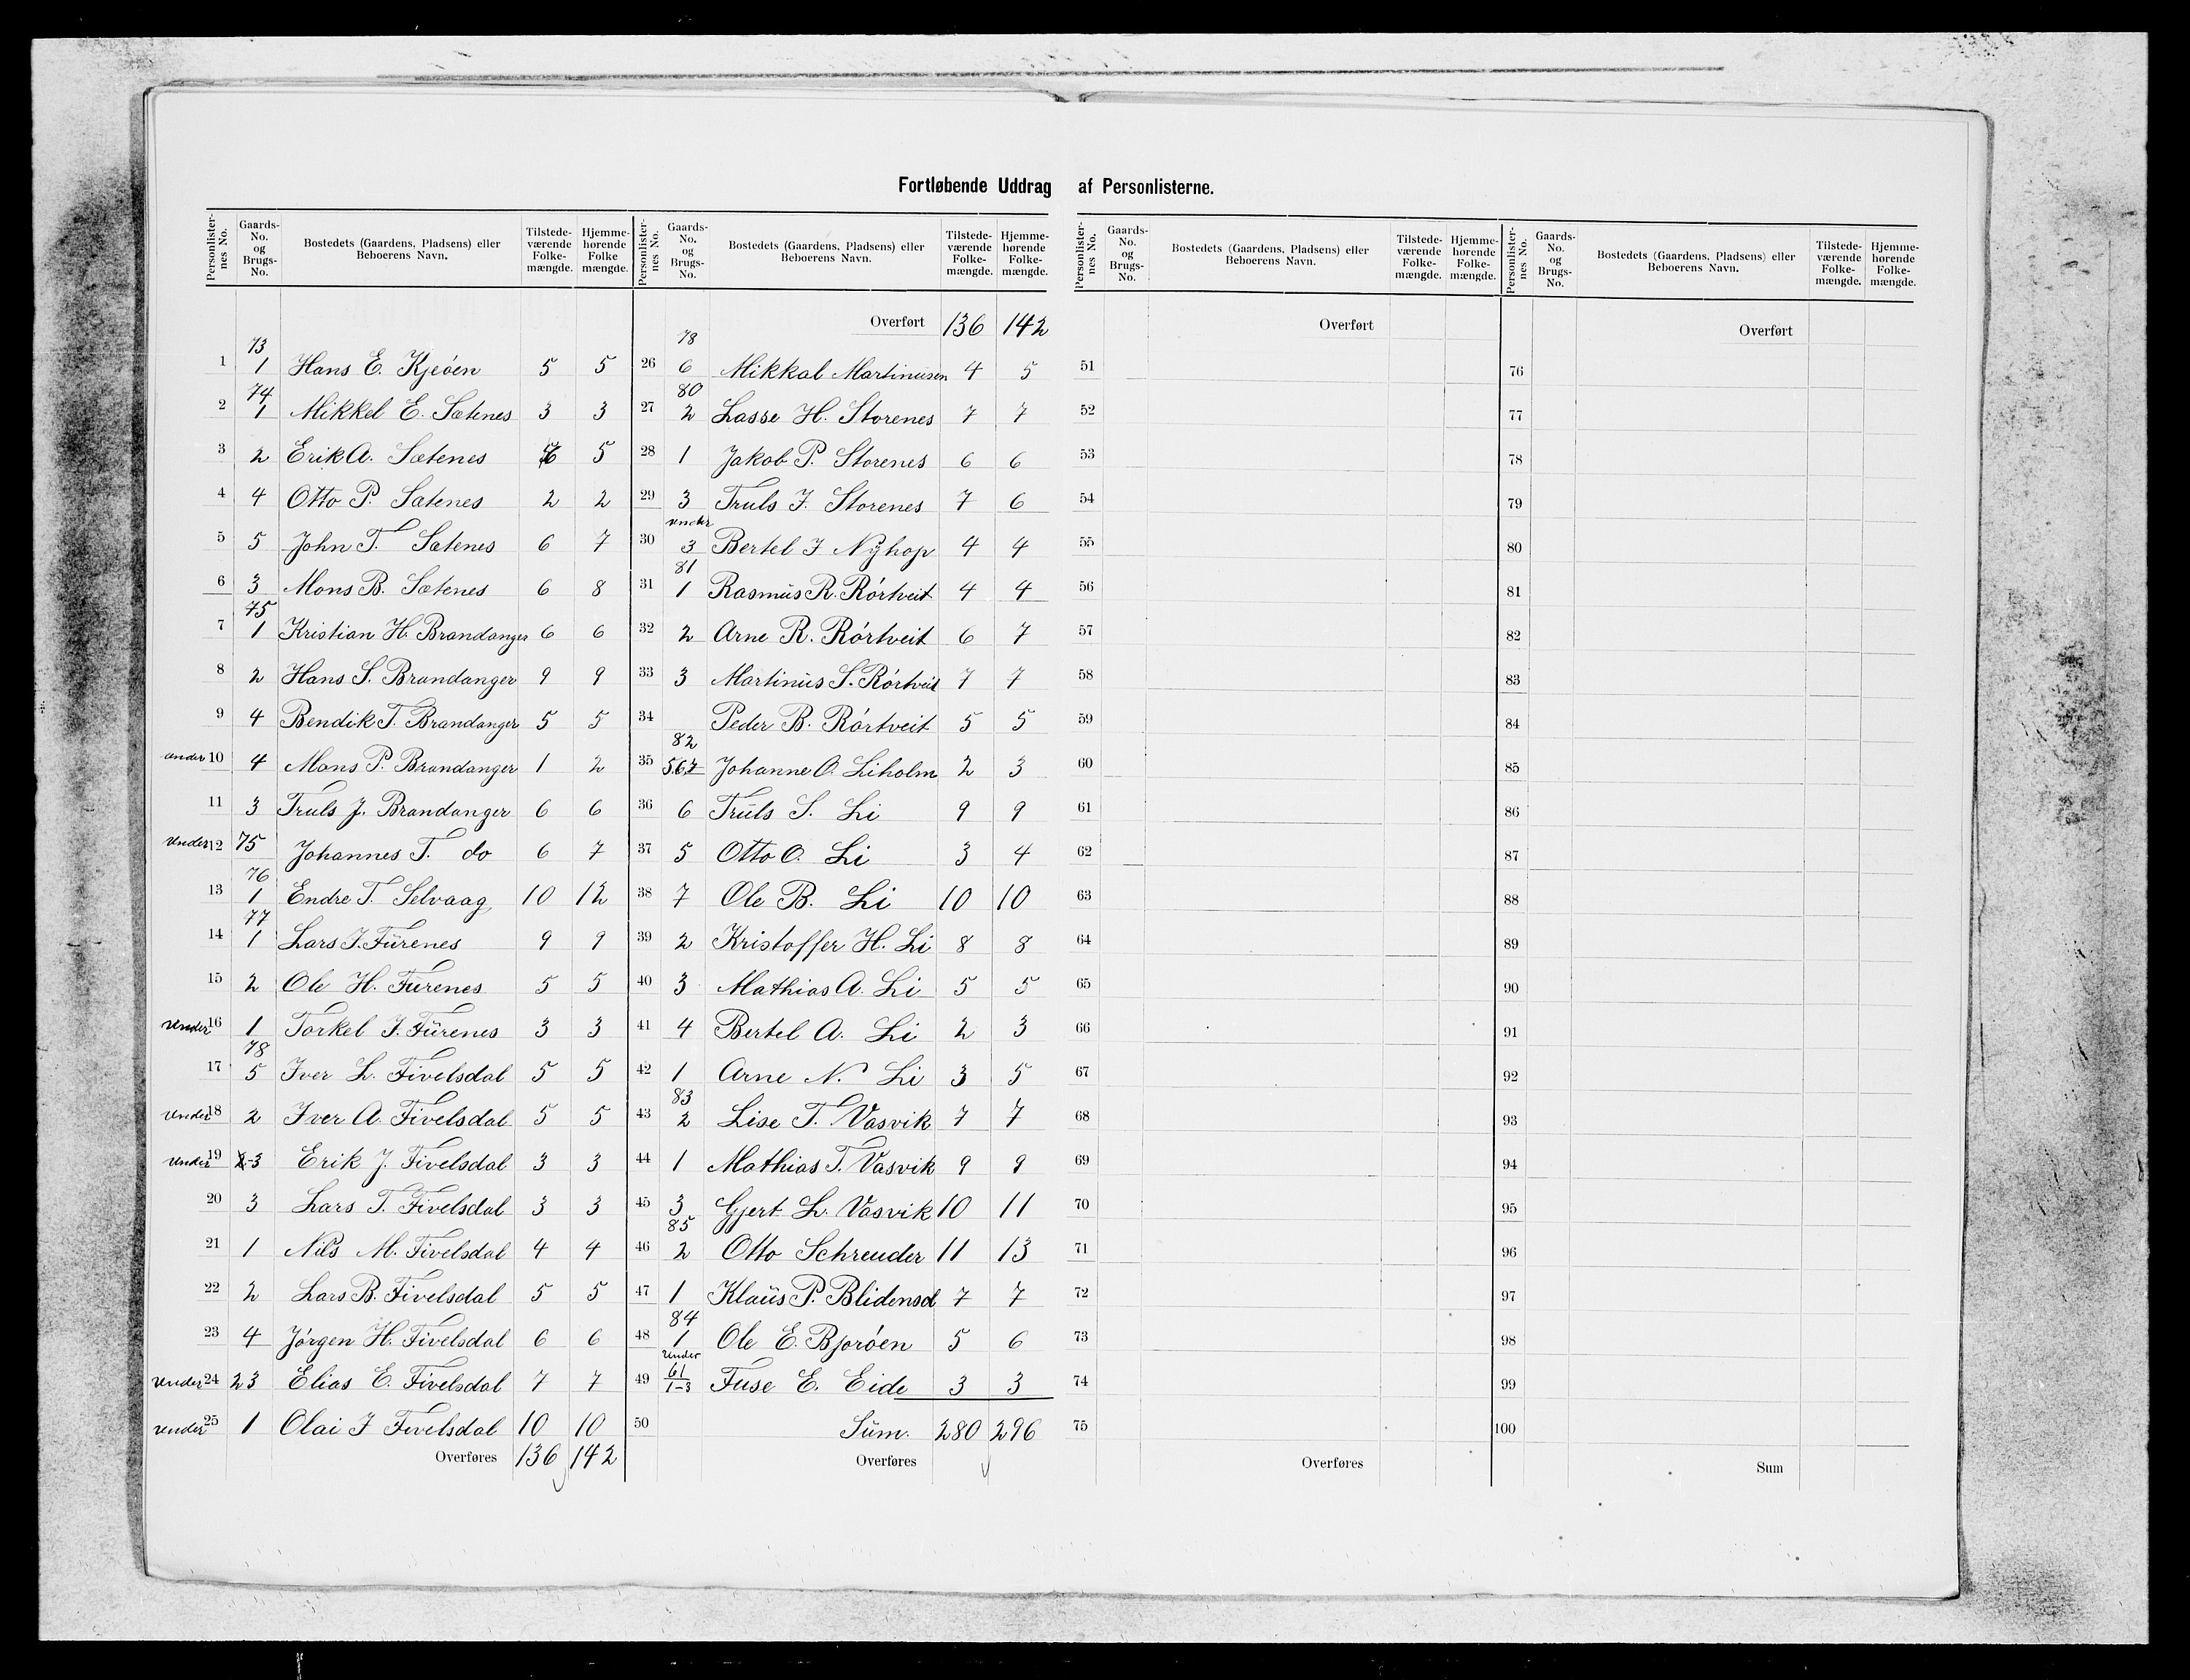 Fortløbende Uddrag af Personlisterne.
Personlister-nes No. Gaards-No. og Brugs-No. Bostedets (Gaardens, Pladsens) eller Beboerens Navn. Tilstede-værende Folke-mængde. Hjemme-hørende Folke mængde.
73
1 1 Hans E. Kjeöen 5 5
74
2 1 Mikkel E. Sætenes 3 3
3 2 Erik A. Sætenes 5
4 4 Otto P. Sætenes 2 2
5 5 John T. Sætenes 6 7
6 3 Mons B. Sætenes 6 8
75
7 1 Kristian H. Brandanger 6 6
8 2 Hans S. Brandanger 9 9
9 4 Bendik T. Brandanger 5 5
under 10 4 Mons P. Brandanger 1 2
11 3 Truls J. Brandanger 6 6
under 12 75 Johannes T. do 6 7
76
13 1 Endre T. Selvaag 10 12
77
14 1 Lars J. Fürenes 9 9
15 2 Ole H. Fürenes 5 5
under 16 1 Torkel J. Fürenes 3 3
78
17 5 Iver L. Fivelsdal 5 5
under 18 2 Iver A. Fivelsdal 5 5
under 19 3 Erik J. Fivelsdal 3 3
20 3 Lars T. Fivelsdal 3 3
21 1 Nils M. Fivelsdal 4 4
22 2 Lars B. Fivelsdal 5 5
23 4 Jørgen H. Fivelsdal 6 6
under 24 2 3 Elias E. Fivelsdal 7 7
under 25 1 Olai J Fivelsdal 10 10
Overføres 136 142
Personlister-nes No. Gaards-No. og Brugs-No. Bostedets (Gaardens, Pladsens) eller Beboerens Navn. Tilstede-værende Folke-mængde. Hjemme-hørende Folke-mængde.
Overført 136 142
78
26 6 Mikkal Martinüsen 4 5
80
27 2 Lasse H. Storenes 7 7
28 1 Jakob P. Storenes 6 6
29 3 Truls J. Storenes 7 6
under
30 3 Bertel J Nyhop 4 4
81
31 1 Rasmüs R. Rórtveit 4 4
32 2 Arne R. Rórtveit 6 7
33 3 Martinüs S. Rórtveit 7 7
34 Peder B. Rórtveit 5 5
82
35 5.6.7 Johanne O. Liholm 2 3
36 6 Trüls S. Li 9 9
37 5 Otto O. Li 3 4
38 7 Ole B. Li 10 10
39 2 Kristoffer H. Li 8 8
40 3 Mathias A. Li 5 5
41 4 Bertel A. Li 2 3
42 1 Arne N. Li 3 5
83
43 2 Lise T. Vasvik 7 7
44 1 Mathias T. Vasvik 9 9
45 3 Gjert L. Vasvik 10 11
85
46 2 Otto Schreuder 11 13
47 1 Klaüs P. Blidensol 7 7
84
48 1 Ole E. Bjoröen 5 6
under
49 61 1-3 Fuse E. Eide 3 3
50 Süm. 280 296
Overføres
Personlister-nes No. Gaards-No. og Brugs-No. Bostedets (Gaardens, Pladsens) eller Beboerens Navn. Tilstede-værende Folke-mængde. Hjemme-hørende Folke-mængde.
Overført
51
52
53
54
55
56
57
58
59
60
61
62
63
64
65
66
67
68
69
70
71
72
73
74
75
Overføres
Personlister-nes No. Gaards-No. og Brugs-No. Bostedets (Gaardens, Pladsens) eller Beboerens Navn. Tilstede-værende Folke-mængde. Hjemme-hørende Folke-mængde.
Overført
76
77
78
79
80
81
82
83
84
85
86
87
88
89
90
91
92
93
94
95
96
97
98
99
100
Sum